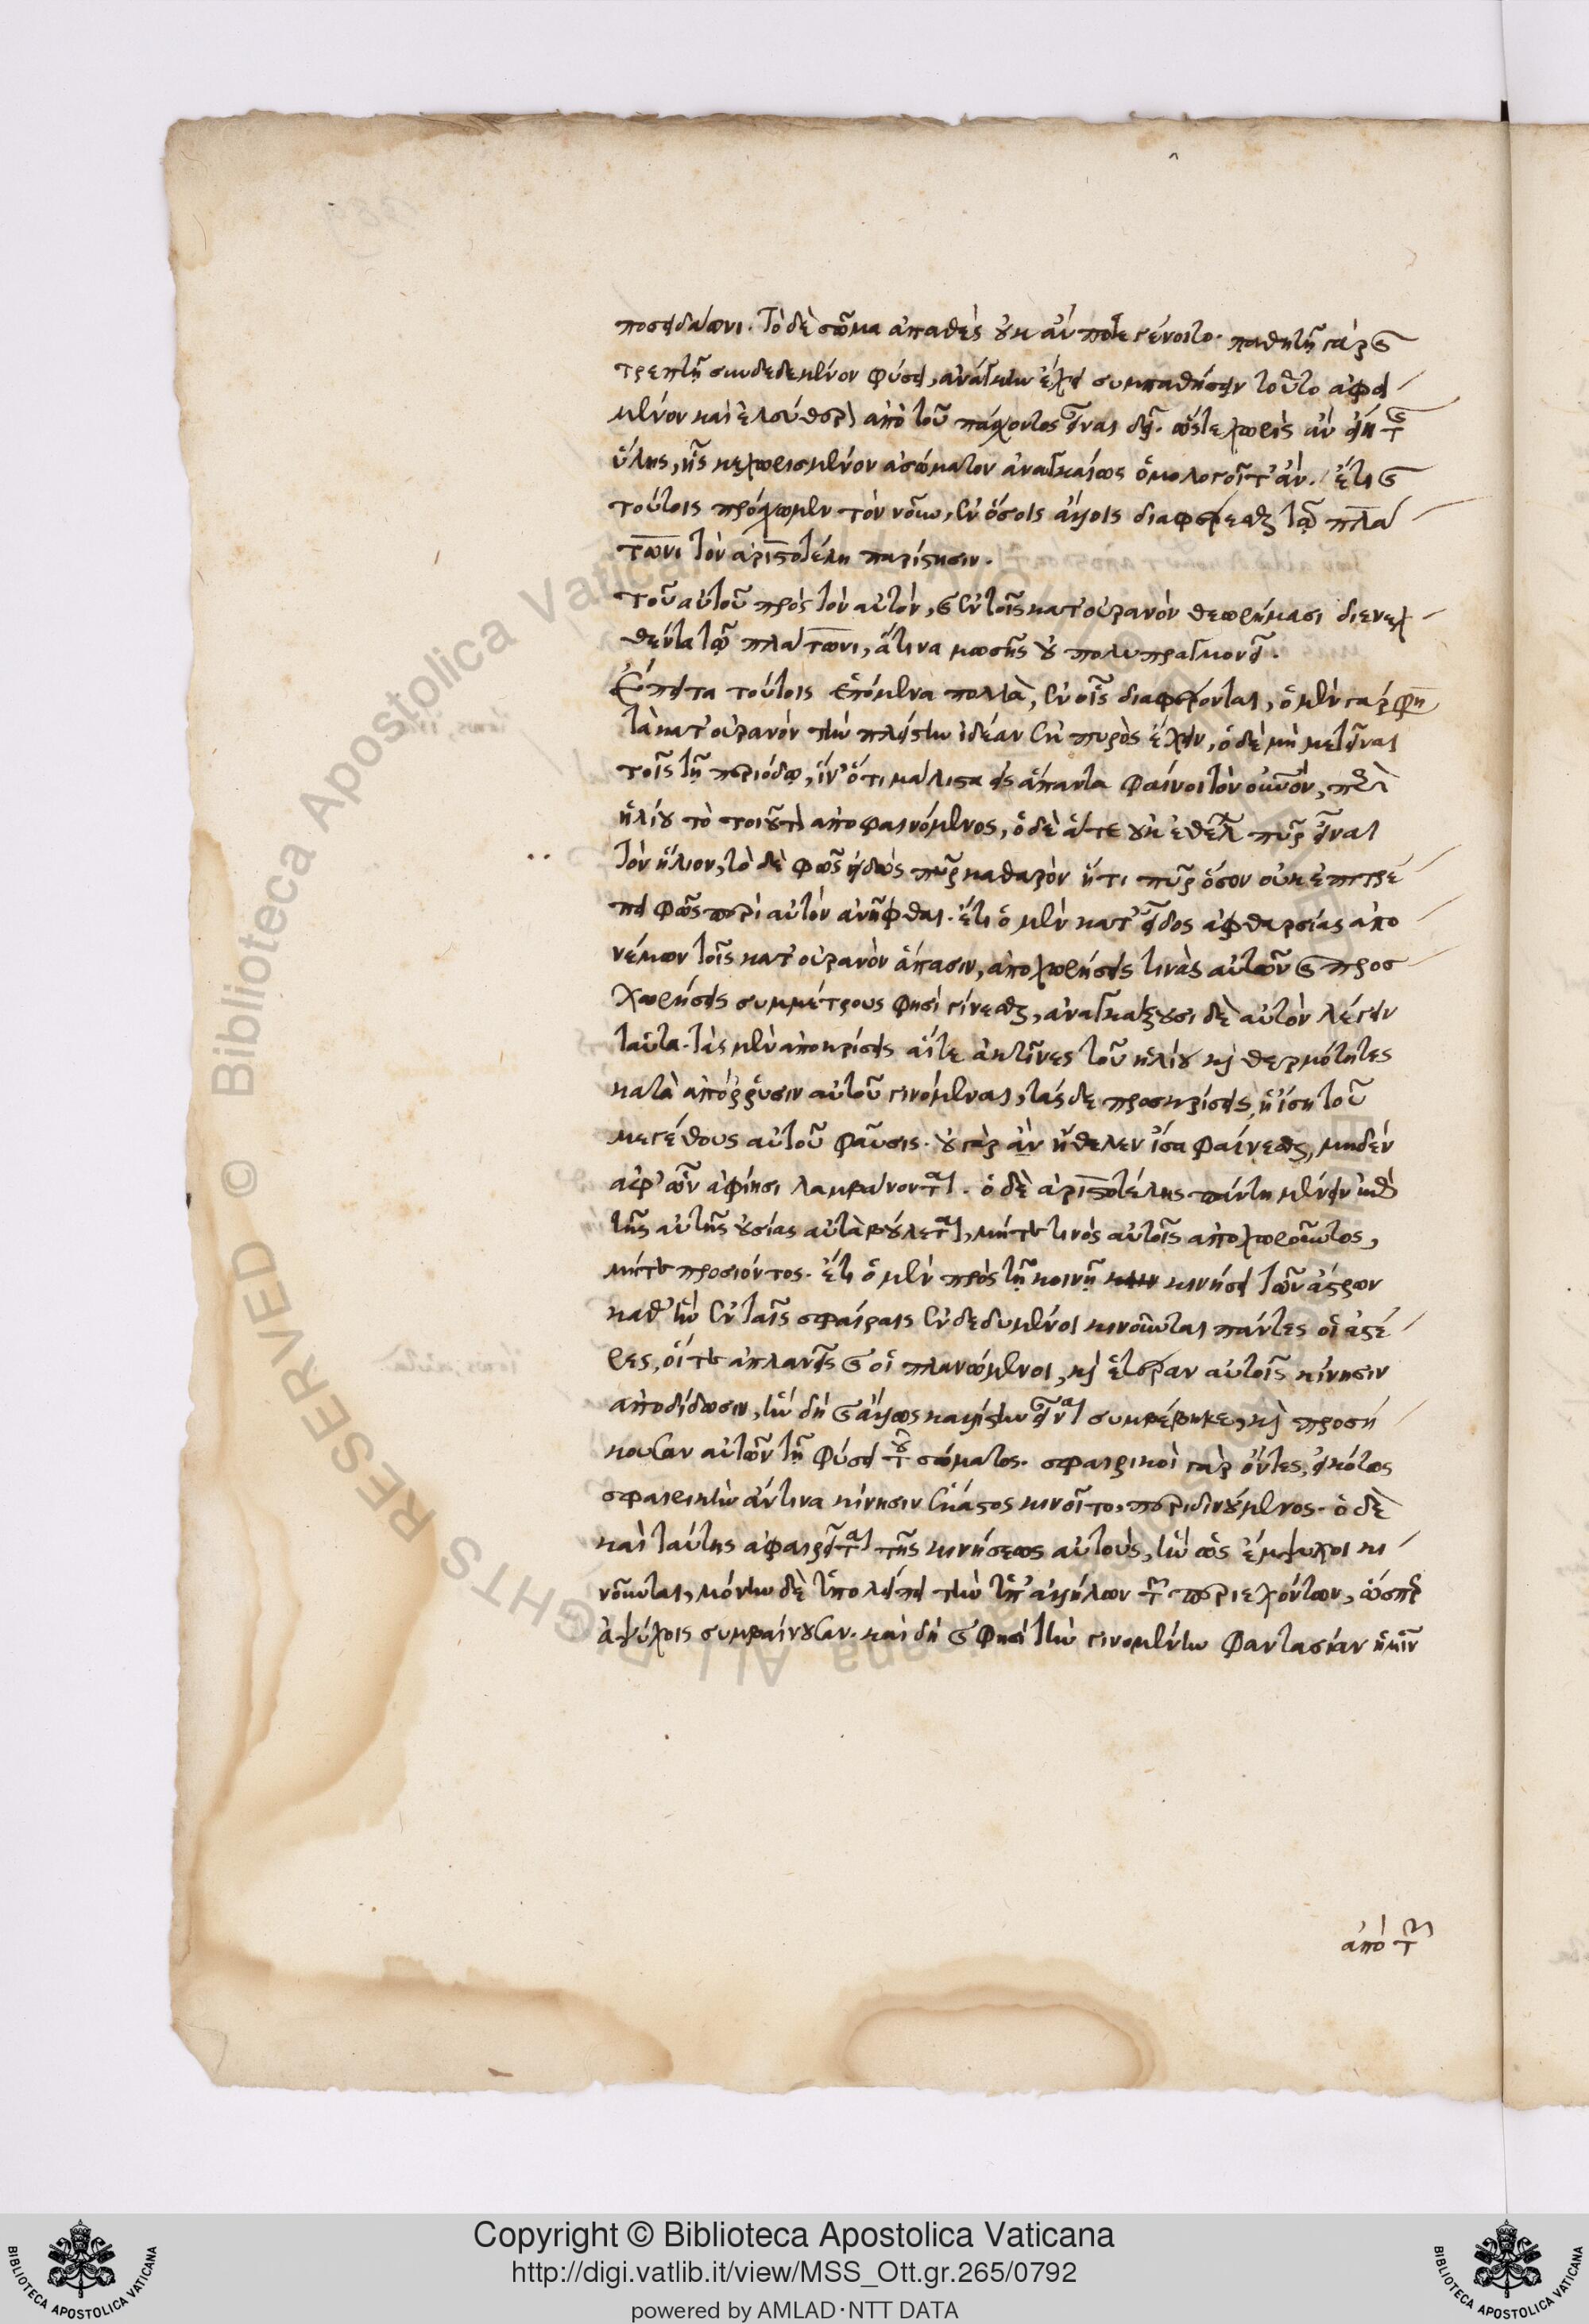 ποσειδῶνι. τὸ δὲ σῶμα ἀπαθὲς οὐκ ἄν ποτε γένοιτο. παθητῇ γὰρ καὶ
τρεπτῇ συνδεδεμένον φύσει, ἀνάγκην ἔχει συμπαθήσειν τοῦτο ἀφει
μένον καὶ ἐλεύθερον ἀπὸ τοῦ πάσχοντος εἶναι δεῖ. ὥστε χωρὶς ἂν εἴη τῆς
ὕλης, ἧς κεχωρισμένον ἀσώματον ἀναγκαίως ὁμολογοῖτ' ἄν. ἔτι καὶ
τούτοις πρόσχωμεν τὸν νοῦν, ἐν ὅσοις ἄλλοις διαφέρεσθαι τῷ πλά
τωνι τὸν ἀριστοτέλη παρίστησιν.
τοῦ αὐτοῦ πρὸς τὸν αὐτὸν, καὶ ἐν τοῖς κατ' οὐρανὸν θεωρήμασι διενεχ
θέντα τῷ πλάτωνι, ἅτινα μωσῆς οὐ πολυπραγμονεῖ.
Ἕπεται τούτοις ἑπόμενα πολλὰ, ἐν οἷς διαφέρονται, ὁ μὲν γάρ φησι
τὰ κατ' οὐρανὸν τὴν πλείστην ἰδέαν ἐκ πυρὸς ἔχειν, ὁ δὲ μὴ μετεῖναι
τοῖς τῇ περιόδῳ, ἵν' ὅτι μάλιστα εἰς ἅπαντα φαίνοι τὸν οὐρανόν, περὶ
ἡλίου τὸ τοιοῦτο ἀποφαινόμενος, ὁ δὲ ἅτε οὐκ ἐθέλων πῦρ εἶναι
τὸν ἥλιον, τὸ δὲ φῶς εἰδὼς πῦρ καθαρὸν ἤ τι πῦρ ὅσον οὐκ ἐπιτρέ
πει φῶς περὶ αὐτὸν ἀνῆφθαι. ἔτι ὁ μὲν κατ' εἶδος ἀφθαρσίας ἀπο
νέμων τοῖς κατ' οὐρανὸν ἅπασιν, ἀποχωρήσεις τινὰς αὐτῶν καὶ προσ
χωρήσεις συμμέτρους φησὶ γίνεσθαι, ἀναγκάζουσι δὲ αὐτὸν λέγειν
ταῦτα. τὰς μὲν ἀποκρίσεις αἵ τε ἀκτῖνες τοῦ ἡλίου καὶ θερμότητες
κατὰ ἀπόρρυσιν αὐτοῦ γινόμεναι, τὰς δὲ προσκρίσεις, ἡ ἴση τοῦ
μεγέθους αὐτοῦ φαῦσις. οὐ γὰρ ἂν ἤθελεν ἴσα φαίνεσθαι, μηδὲν
ἀφ' ὧν ἀφίησι λαμβάνοντα. ὁ δὲ ἀριστοτέλης πάντη μένειν ἐπὶ
τῆς αὐτῆς οὐσίας αὐτὰ βούλεται, μήτε τινὸς αὐτοῖς ἀποχωροῦντος,
μήτε προσιόντος. ἔτι ὁ μὲν πρὸς τῇ κοινῇ κινήσει τῶν ἄστρων
καθ' ἣν ἐν ταῖς σφαίραις ἐνδεδυμένοι κινοῦνται πάντες οἱ ἀστέ
ρες, οἵ τε ἀπλανεῖς καὶ οἱ πλανώμενοι, καὶ ἑτέραν αὐτοῖς κίνησιν
ἀποδίδωσιν, ἣν δὴ καὶ ἄλλως καλλίστην εἶναι συμβέβηκε, καὶ προσή
κουσαν αὐτῶν τῇ φύσει τοῦ σώματος. σφαιρικοὶ γὰρ ὄντες, εἰκότως
σφαιρικὴν ἄν τινα κίνησιν ἕκαστος κινοῖτο, περιδινούμενος. ὁ δὲ
καὶ ταύτης ἀφαιρεῖται τῆς κινήσεως αὐτοὺς, ἣν ὡς ἔμψυχοι κι
νοῦνται, μόνην δὲ ὑπολείπει τὴν ὑπ' ἀλλήλων τῶν περιεχόντων, ὥσπερ
ἀψύχοις συμβαίνουσαν. καὶ δὴ καὶ φησὶ τὴν γινομένην φαντασίαν ἡμῖν
ἀπὸ τῶν
Copyright © Biblioteca Apostolica Vaticana
http://digi.vatlib.it/view/MSS_Ott.gr.265/0792
powered by AMLAD·NTT DATA
BIBLIOTECA APOSTOLICA VATICANA
BIBLIOTECA APOSTOLICA VATICANA